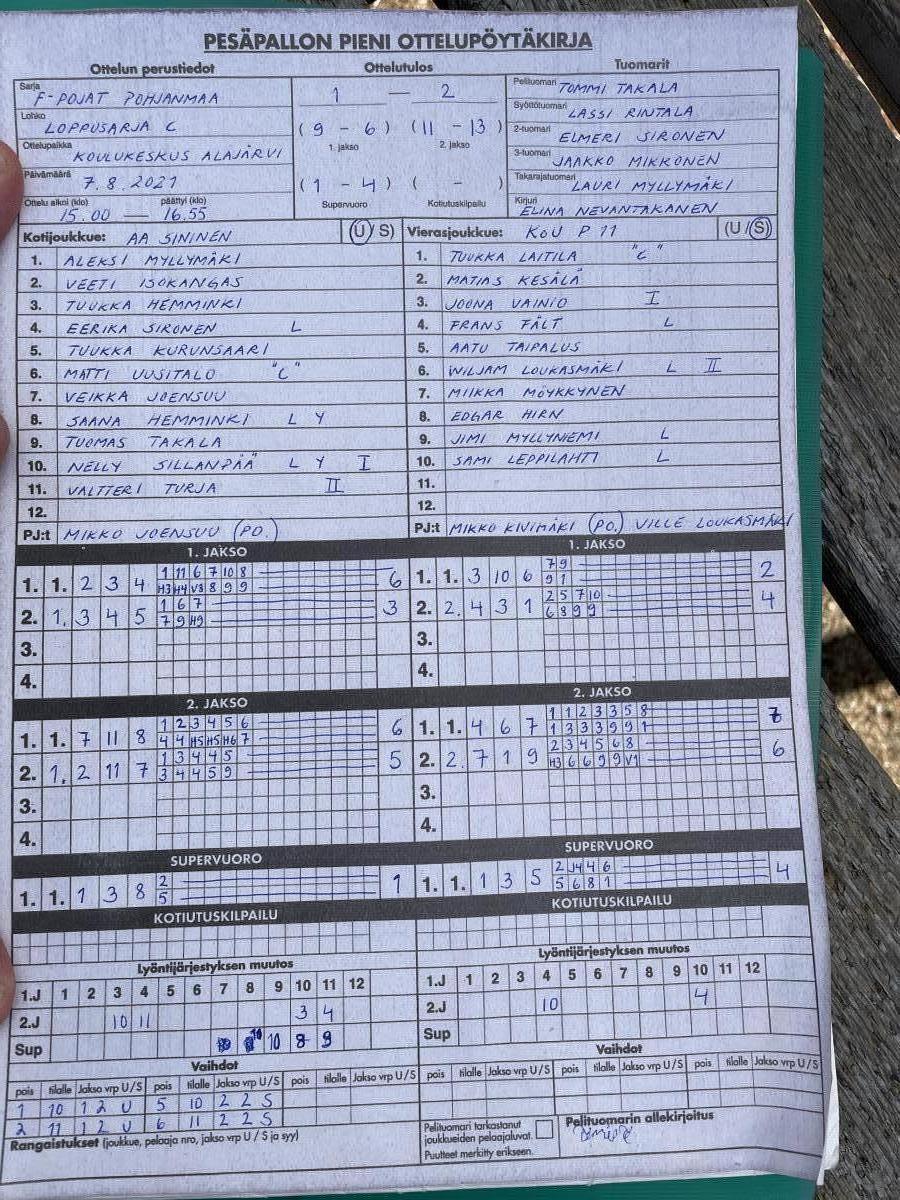 PESÄPALLON PIENI OTTELUPÖYTÄKIRJA
Ottelun perustiedot Ottelutulos Tuomarit
Sarja F-POJAT POHJANMAA
Lohko LOPPUSARJA C
Ottelupaikka KOULUKESKUS ALAJÄRVI
Päivämäärä 7.8.2021
Ottelu alkoi (klo) päättyi (klo)
15.00 — 16.55
1 — 2
(9 - 6) (11 - 13)
1. jakso 2. jakso
(1 - 4) ( - )
Supervuoro Kotiutuskilpailu
Pelituomari TOMMI TAKALA
Syöttötuomari LASSI RINTALA
2-tuomari ELMERI SIRONEN
3-tuomari JAAKKO MIKKONEN
Takarajatuomari LAURI MYLLYMÄKI
Kirjuri ELINA NEVANTAKANEN
Kotijoukkue: AA SININEN (U/S)
1. ALEKSI MYLLYMÄKI
2. VEETI ISOKANGAS
3. TUUKKA HEMMINKI
4. EERIKA SIRONEN L
5. TUUKKA KURUNSAARI
6. MATTI UUSITALO "C"
7. VEIKKA JOENSUU
8. SAANA HEMMINKI L Y
9. TUOMAS TAKALA
10. NELLY SILLANPÄÄ L Y I
11. VALTTERI TURJA II
12.
PJ:t MIKKO JOENSUU (PO.)
Vierasjoukkue: KOU P11 (U/S)
1. TUUKKA LAITILA "C"
2. MATIAS KESÄLÄ
3. JOONA VAINIO I
4. FRANS FÄLT L
5. AATU TAIPALUS
6. WILJAM LOUKASMÄKI L II
7. MIIKKA MÖYKKYNEN
8. EDGAR HIRN
9. JIMI MYLLYNIEMI L
10. SAMI LEPPILAHTI L
11.
12.
PJ:t MIKKO KIVIMÄKI (PO.) VILLE LOUKASMÄKI
1. JAKSO
1. 1. 2 3 4 1 11 6 7 10 8 6
H3 H4 V3 8 9 9
2. 1. 3 4 5 1 6 7 3
7 9 H9
3.
4.
1. JAKSO
1. 1. 3 10 6 7 9 2
9 1
2. 2. 4 3 1 2 5 7 10 4
6 8 9 9
3.
4.
2. JAKSO
1. 1. 7 11 8 1 2 3 4 5 6 6
4 4 H5 H5 H6 7
2. 1. 2 11 7 1 3 4 4 5 5
3 4 4 5 9
3.
4.
2. JAKSO
1. 1. 4 6 7 1 1 2 3 3 5 8 7
1 3 3 3 9 9 1
2. 2. 7 1 9 2 3 4 5 6 8 6
H3 6 6 9 9 V1
3.
4.
SUPERVUORO
1. 1. 1 3 8 2 1
5
SUPERVUORO
1. 1. 1 3 5 2 J4 4 6 4
5 6 8 1
KOTIUTUSKILPAILU
KOTIUTUSKILPAILU
Lyöntijärjestyksen muutos
1.J 1 2 3 4 5 6 7 8 9 10 11 12
2.J 10 11 3 4
Sup 10 8 9
Lyöntijärjestyksen muutos
1.J 1 2 3 4 5 6 7 8 9 10 11 12
2.J 10 4
Sup
Vaihdot
pois tilalle Jakso vrp U/S pois tilalle Jakso vrp U/S pois tilalle Jakso vrp U/S
1 10 1 2 U 5 10 2 2 S
2 11 1 2 U 6 11 2 2 S
Vaihdot
pois tilalle Jakso vrp U/S pois tilalle Jakso vrp U/S pois tilalle Jakso vrp U/S
Rangaistukset (joukkue, pelaaja nro, jakso vrp U / S ja syy)
Pelituomari tarkastanut
joukkueiden pelaajaluvat.
Puutteet merkitty erikseen.
Pelituomarin allekirjoitus